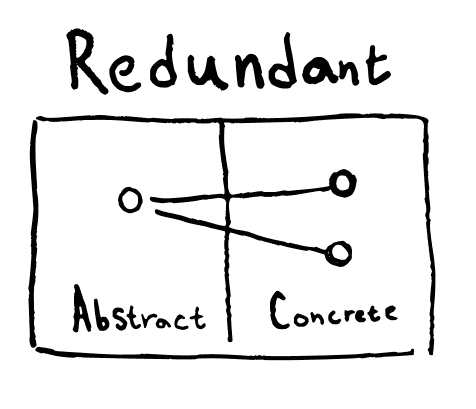 Redundant
Abstract
Concrete